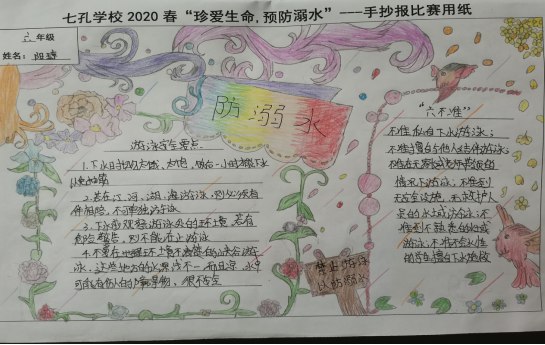 七孔学校2020春“珍爱生命,预防溺水”---手抄报比赛用纸
六 年级
姓名:
防溺水
游泳安全要点
1.下水时切勿太饿、太饱。饭后一小时才能下水
2.若在江、河、湖、海游泳,则必须有
伴相陪,不可单独游泳
3.下水前观察游泳处的环境,若有
危险警告,则不能在此游泳
4.不要在地理环境不清楚的
泳。这些地方的水深浅不一,而且凉,水中
可能有伤人的障碍物,很不安全
“六不准”
不准私自下水游泳;
不准擅自与他人结伴游泳;
不准在无家长或老师带领的
情况下游泳,不准到
无安全设施、无救护人
员的水域游泳;不
准到不熟悉的水域
游泳,不准不会水性
的学生擅自下水施救
禁止游泳
以防溺水